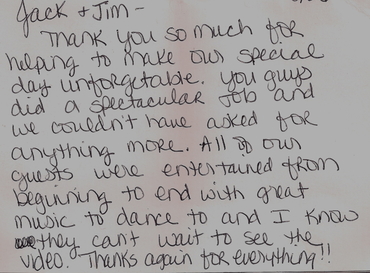 Jack + Jim -
Thank you so much for
helping to make our special
day unforgetable. You guys
did a spectacular job and
we couldn't have asked for
anything more. All of our
guests were entertained from
beginning to end with great
music to dance to and I know
they can't wait to see the
video. Thanks again for everything!!